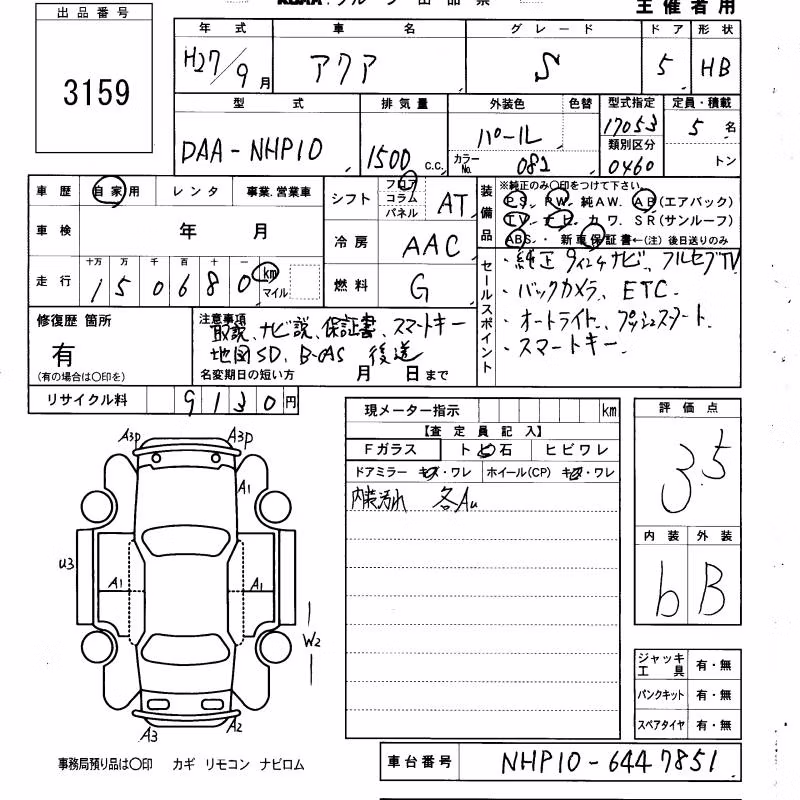 出品番号
3159
主催者用
年式 車名 グレード ドア 形状
H27/9月 アクア S 5 HB
型式 排気量 外装色 色替 型式指定 定員・積載
DAA-NHP10 1500 c.c. パール 17053 5名
類別区分
カラーNo. 082 0460 トン
車歴 自家用 レンタ 事業.営業車
車検 年 月
走行 十万 万 千 百 十 一
150680 km マイル
シフト フロア コラム パネル AT
冷房 AAC
燃料 G
装備品 ※純正のみ〇印をつけて下さい
PS. PW. 純AW. AB(エアバック)
TV. ナビ. カワ. SR(サンルーフ)
ABS. 新車保証書←(注) 後日送りのみ
セールスポイント
・純正9インチナビ、フルセグTV
・バックカメラ、ETC.
・オートライト、プッシュスタート.
・スマートキー.
修復歴 箇所
有
(有の場合は〇印を)
注意事項
取説、ナビ説、保証書、スマートキー
地図SD、B-CAS 後送
名変期日の短い方 月 日まで
リサイクル料 9130円
現メーター指示 km
【査定員記入】
Fガラス トビ石 ヒビワレ
ドアミラー キズ・ワレ ホイール(CP) キズ・ワレ
内装汚れ 各Au
評価点
3.5
内装 外装
b B
A3P A3P
A1
U3 A1 A1
W2
A3 A2
ジャッキ工具 有・無
パンクキット 有・無
スペアタイヤ 有・無
事務局預り品は〇印 カギ リモコン ナビロム
車台番号 NHP10-6447851